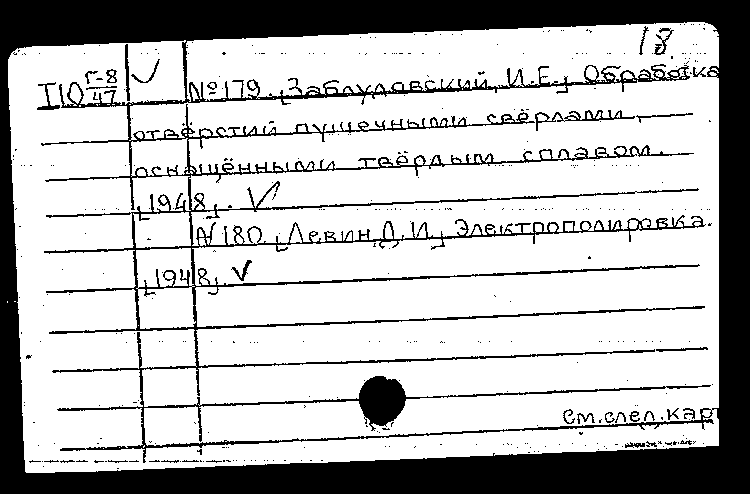 18
Т10 Г-8/47 № 179. [Заблудовский, И.Е.] Обработка
отвёрстий пушечными свёрлами,
оснащёнными твёрдым сплавом.
[1948].
№ 180. [Левин, Д. И.] Электрополировка.
[1948].
см. след. карт